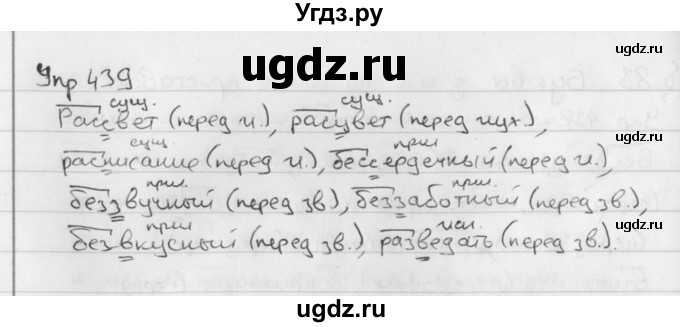 Угдз.ру
ugdz.ru
ugdz.ru
Упр 439
сущ. сущ.
Рассвет (перед и.), расцвет (перед
сущ. прил
расписание (перед и.), бессердечный (перед и.),
прил. прил.
беззвучный (перед зв.), беззаботный (перед зв.),
ugdz.ru
прил
безвкусный (перед зв.), разведать (перед зв.).
ugdz.ru
ugdz.ru